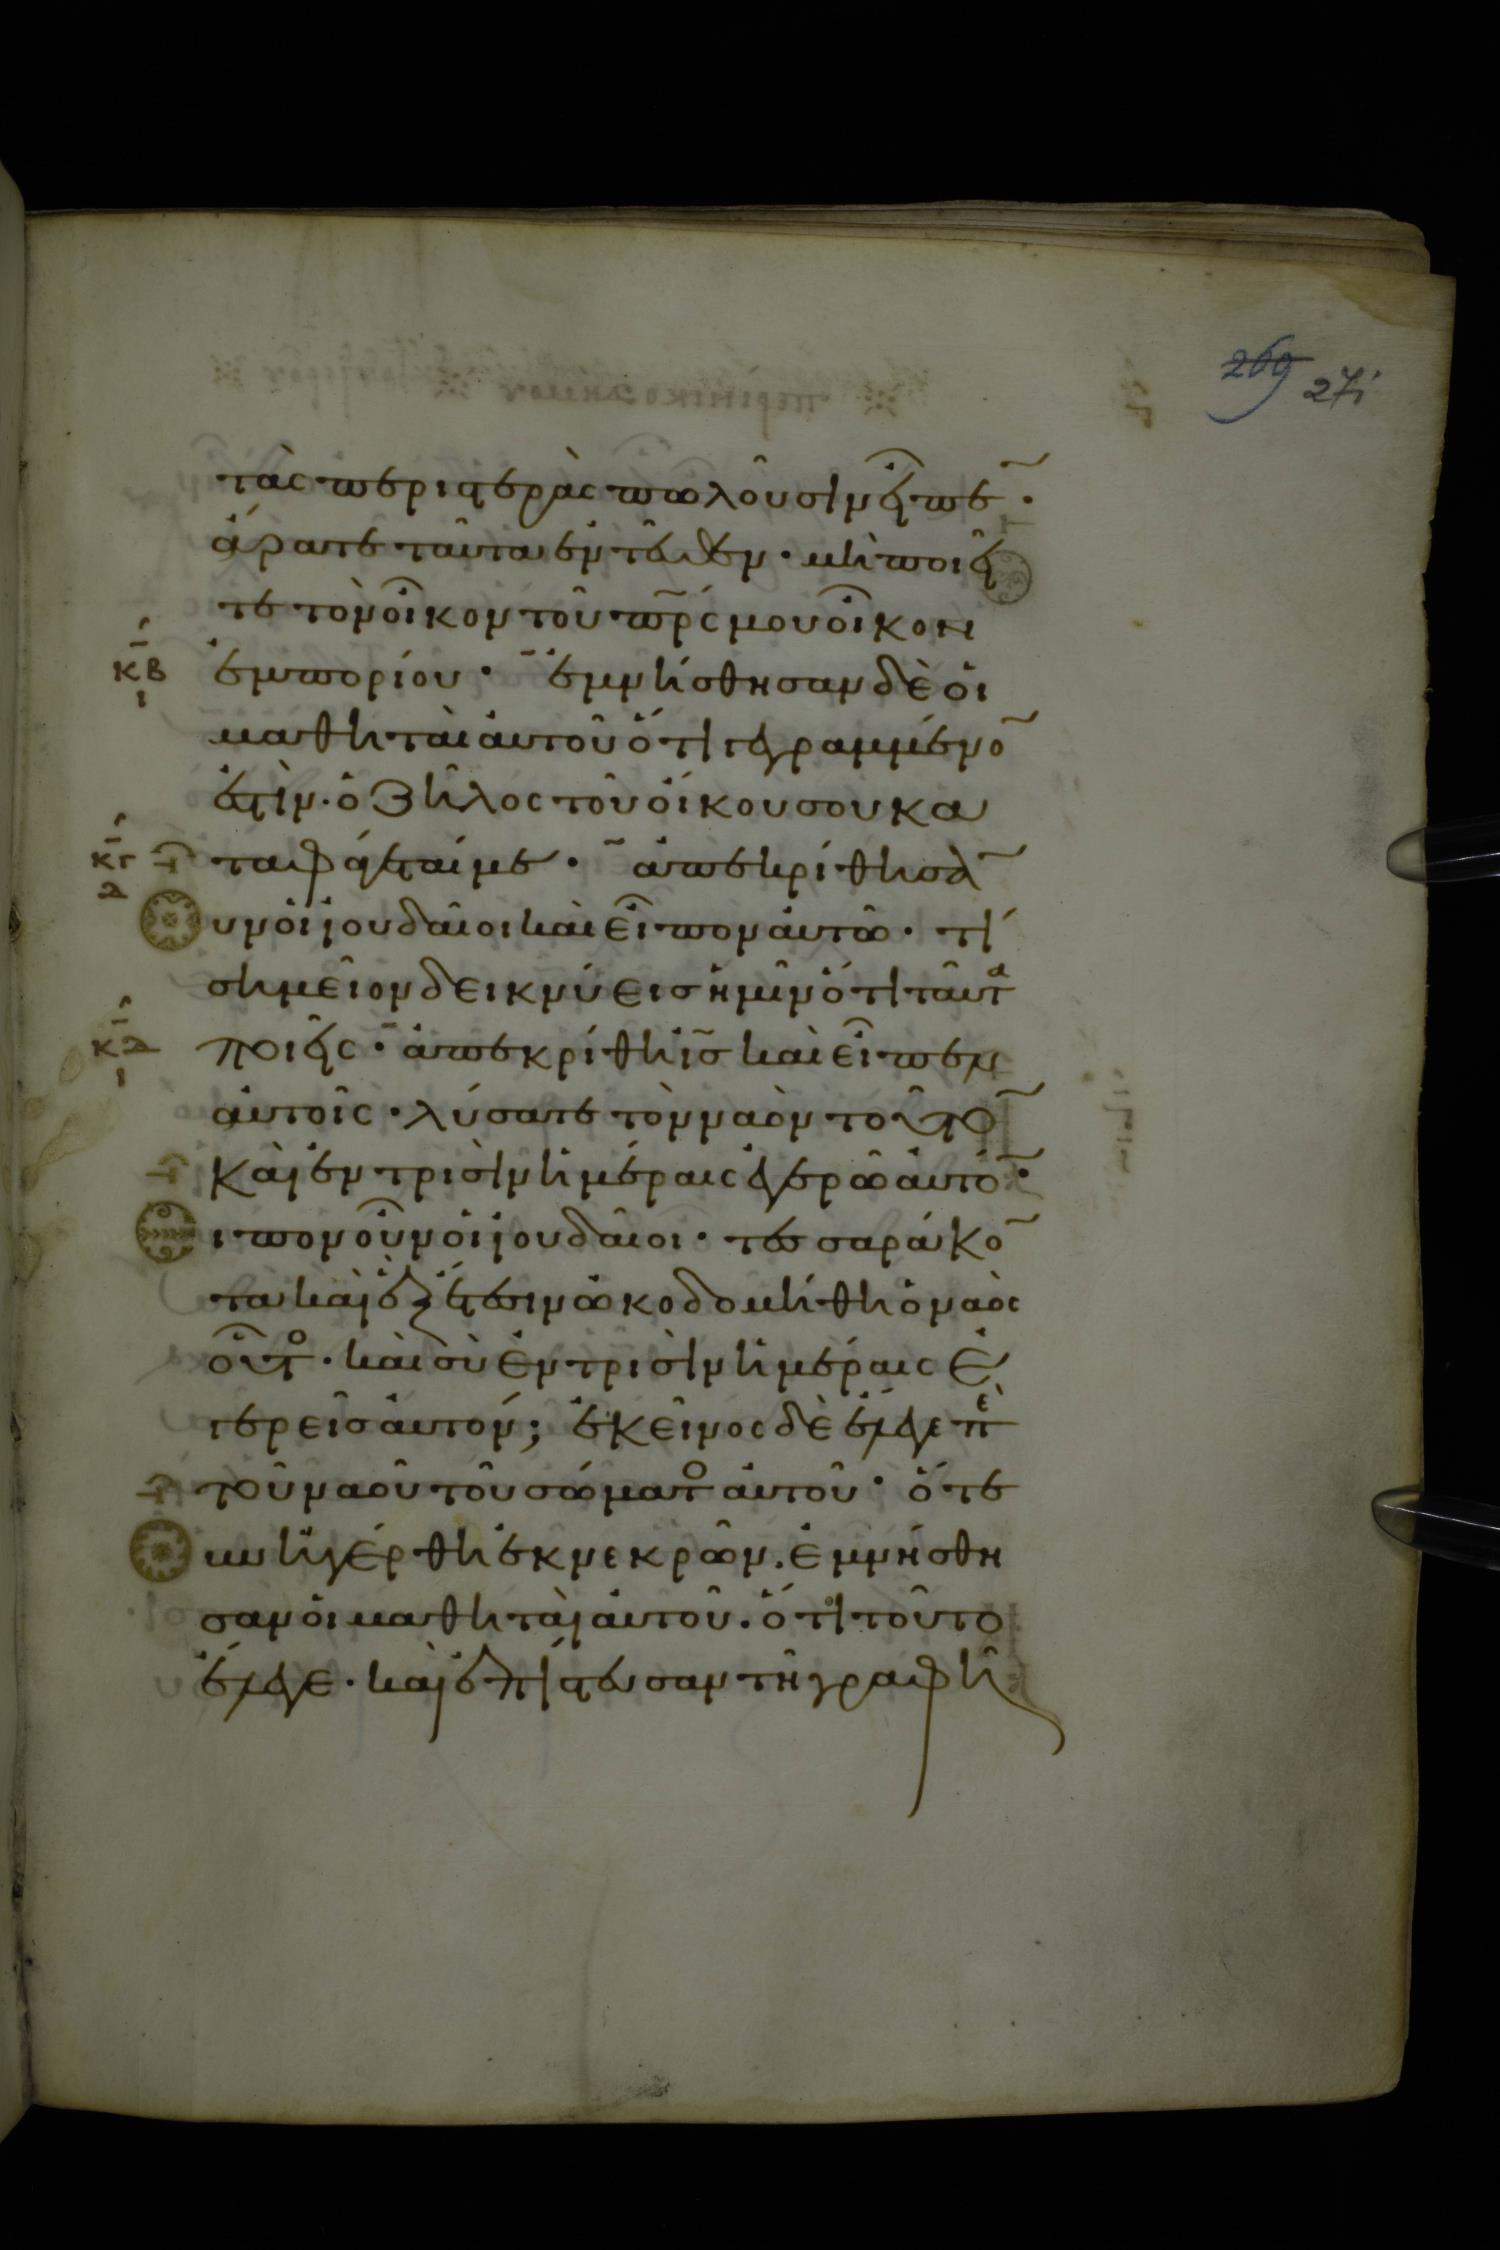 269 271
τὰς περιστερὰς πωλοῦσιν εἶπε ·
ἄρατε ταῦτα ἐντεῦθεν · μὴ ποιεῖ
τε τὸν οἶκον τοῦ πρ̅ς μου οἶκον
κβ ι ἐμπορίου · ἐμνήσθησαν δὲ οἱ
μαθηταὶ αὐτοῦ ὅτι γεγραμμένο̅
ἐστὶν · ὁ ζῆλος τοῦ οἴκου σου κα
κγ δ ταφάγεταί με · ἀπεκρίθησα̅
οὖν οἱ ἰουδαῖοι καὶ εἶπον αὐτῶ · τί
σημεῖον δεικνύεις ἡμῖν ὅτι ταῦτα
κδ ι ποιεῖς · ἀπεκρίθη ι̅ς̅ καὶ εἶπεν
αὐτοῖς · λύσατε τὸν ναὸν τοῦτο̅
καὶ ἐν τρισὶν ἡμέραις ἐγερῶ αὐτό̅ ·
εἶπον οὖν οἱ ἰουδαῖοι · τεσσαράκο̅
τα καὶ ἓξ ἔτεσιν ὠκοδομήθη ὁ ναὸς
οὗτος · καὶ σὺ ἐν τρισὶν ἡμέραις ἐ
γερεῖς αὐτόν; ἐκεῖνος δὲ ἔλεγε πε
τοῦ ναοῦ τοῦ σώματος αὐτοῦ · ὅτε
οὖν ἠγέρθη ἐκ νεκρῶν. ἐμνήσθη
σαν οἱ μαθηταὶ αὐτοῦ. ὅτι τοῦτο
ἔλεγε · καὶ ἐπίστευσαν τῆ γραφῆ